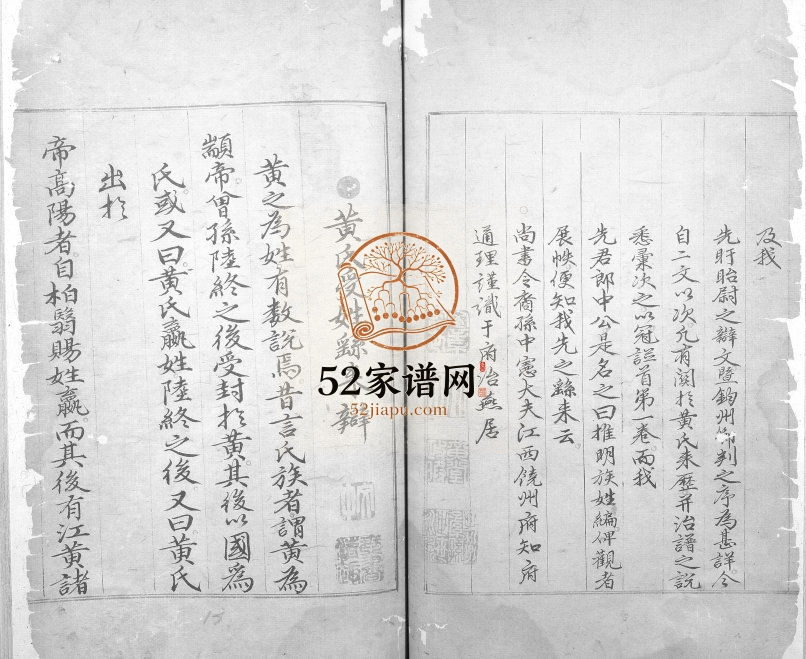 及我
先盱眙尉之辯文暨鈞州 判之序為甚詳今
自二文以次凡有関扵黄氏来歷并治譜之說
悉彚次之以冠諸首第一卷而我
先君郎中公是名之曰推明族姓編俾觀者
展帙便知我先之繇来云
尚書令裔孫中憲大夫江西饒州府知府
通理謹識于府治燕居
黄氏受姓繇 辯
黄之為姓有数説焉昔言氏族者謂黄為
顓帝曾孫陸終之後受封扵黄其後以國為
氏或又曰黄氏嬴姓陸終之後又曰黄氏
出扵
帝髙陽者自柏翳賜姓嬴而其後有江黄諸
15
52家谱网
52jiapu.com